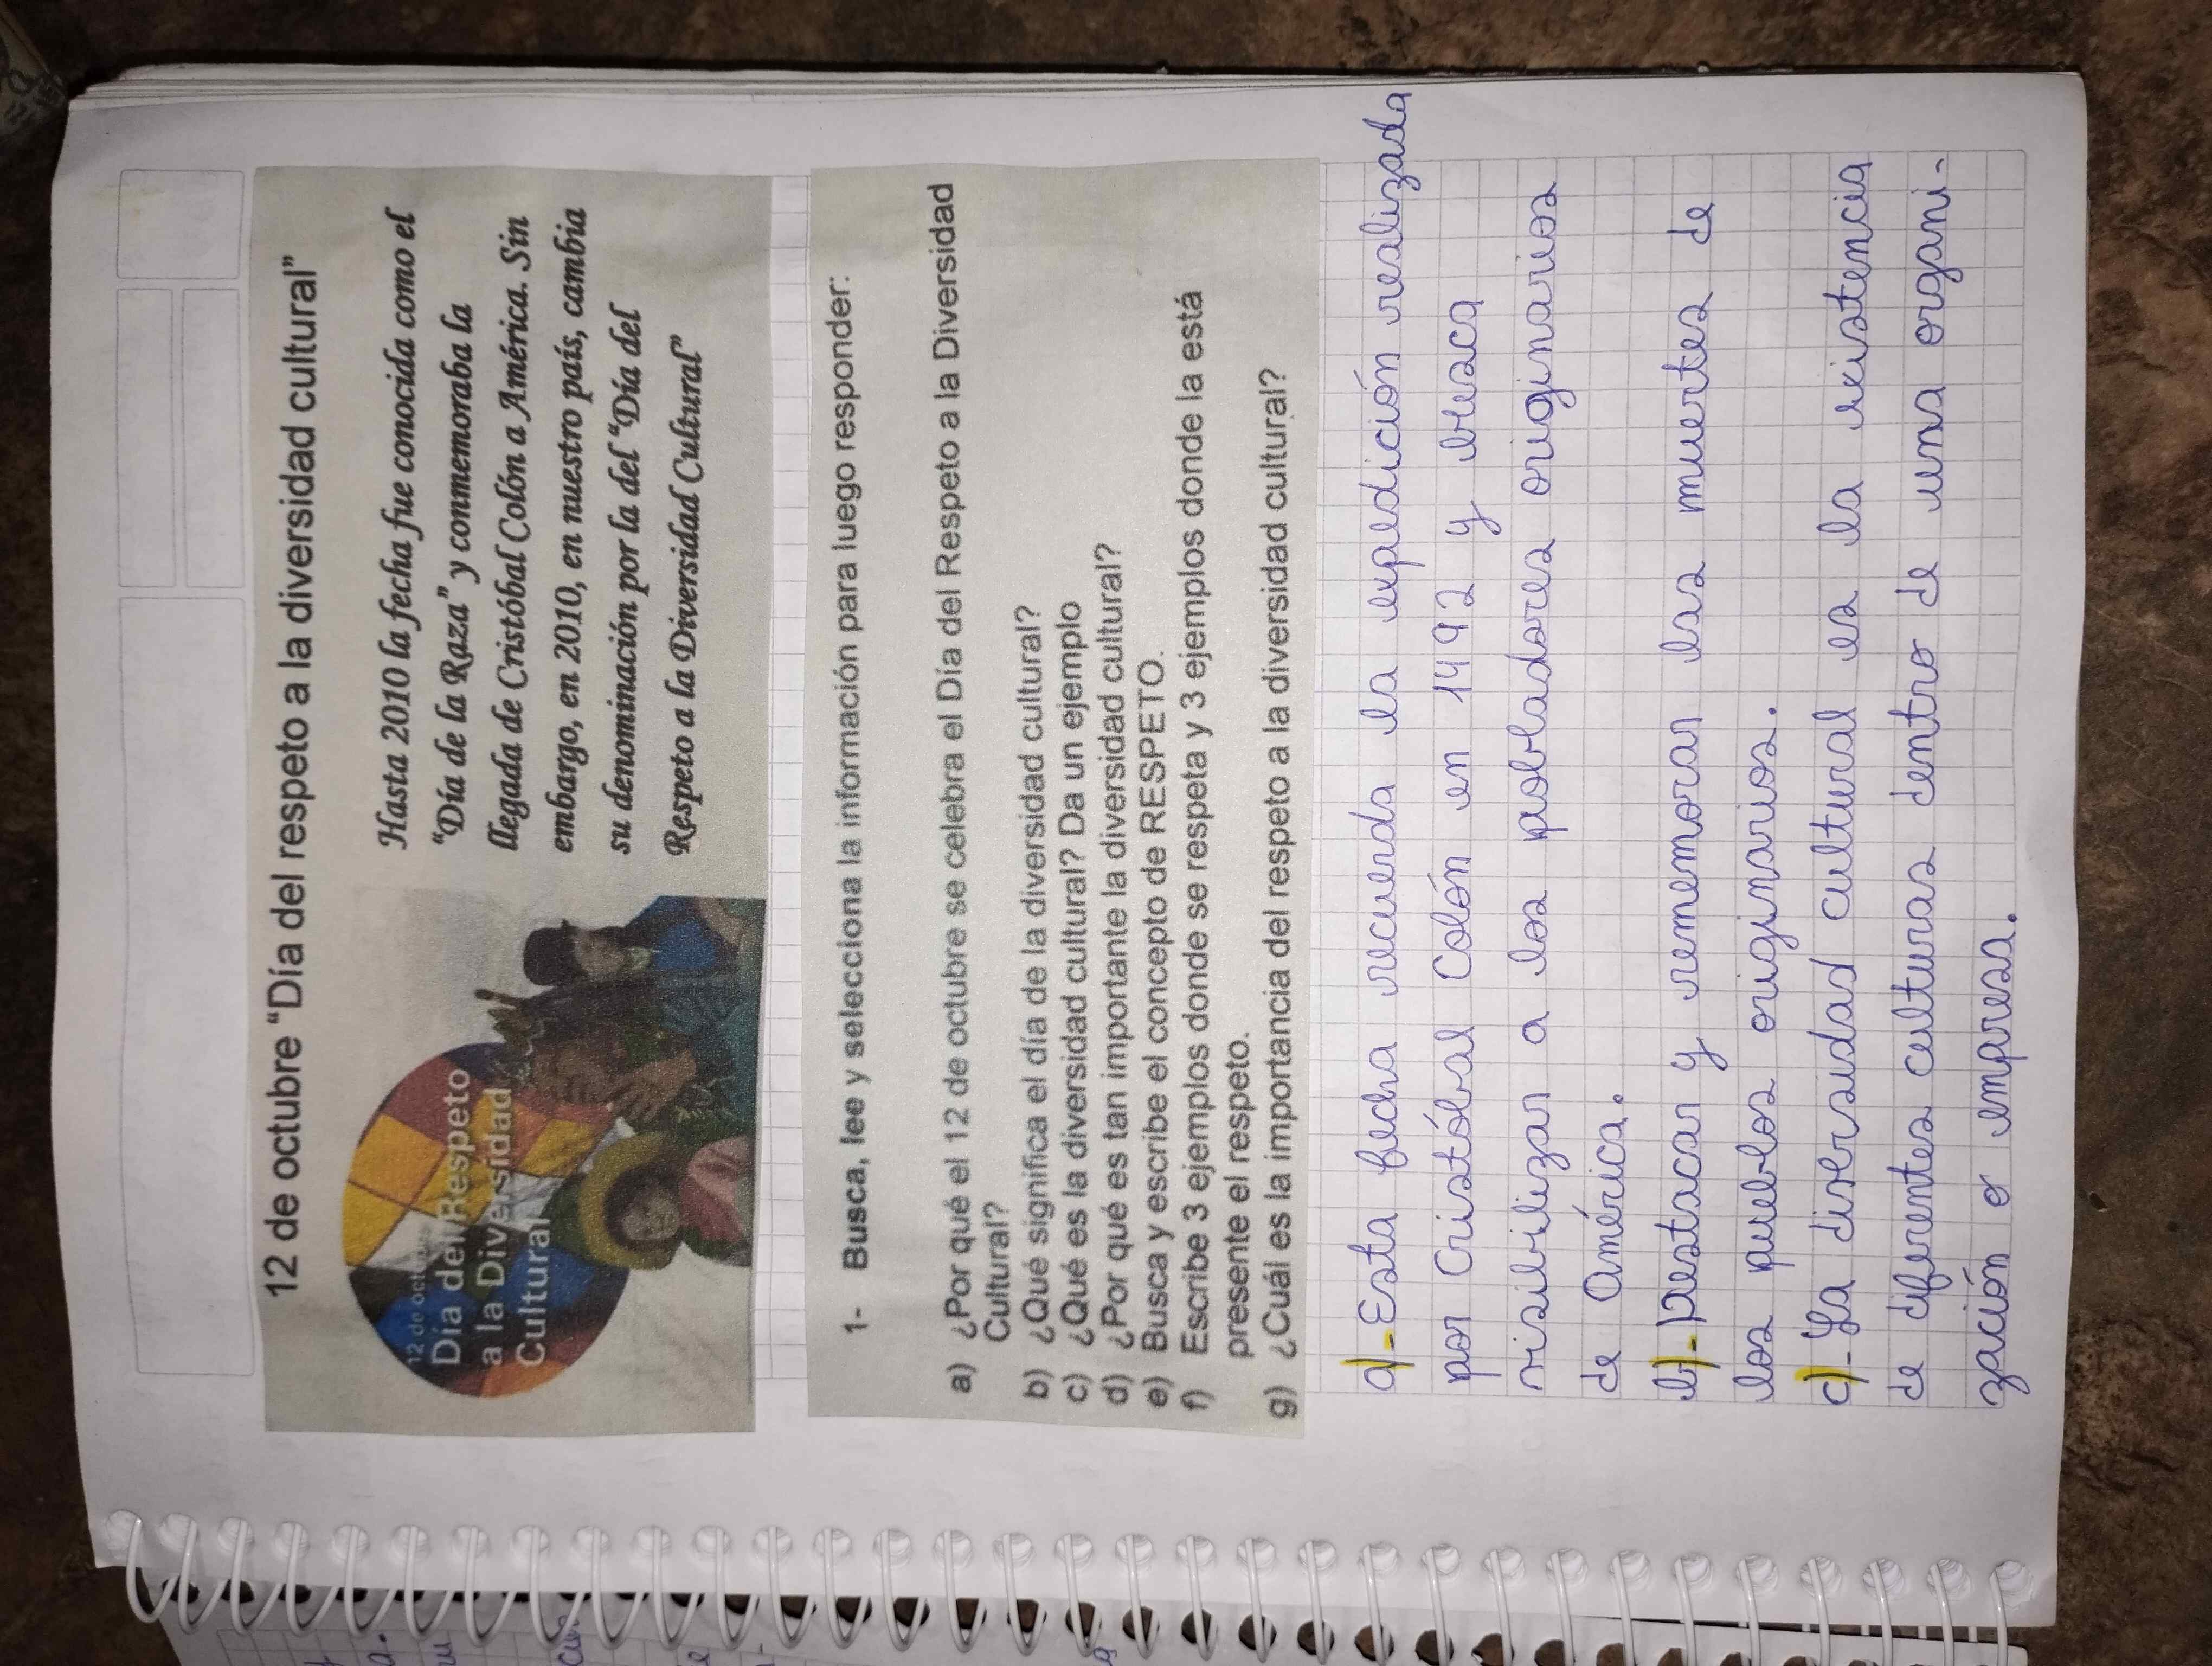 12 de octubre “Día del respeto a la diversidad cultural”
12 de octubre
Día del Respeto
a la Diversidad
Cultural
Hasta 2010 la fecha fue conocida como el
“Día de la Raza” y conmemoraba la
llegada de Cristóbal Colón a América. Sin
embargo, en 2010, en nuestro país, cambia
su denominación por la del “Día del
Respeto a la Diversidad Cultural”
1- Busca, lee y selecciona la información para luego responder:
a) ¿Por qué el 12 de octubre se celebra el Día del Respeto a la Diversidad
Cultural?
b) ¿Qué significa el día de la diversidad cultural?
c) ¿Qué es la diversidad cultural? Da un ejemplo
d) ¿Por qué es tan importante la diversidad cultural?
e) Busca y escribe el concepto de RESPETO.
f) Escribe 3 ejemplos donde se respeta y 3 ejemplos donde la está
presente el respeto.
g) ¿Cuál es la importancia del respeto a la diversidad cultural?
a)-Esta fecha recuerda la expedición realizada
por Cristóbal Colón en 1492 y busca
visibilizar a los pobladores originarios
de América.
b)-Destacar y rememorar las muertes de
los pueblos originarios.
c)-La diversidad cultural es la existencia
de diferentes culturas dentro de una organi-
zación o empresa.